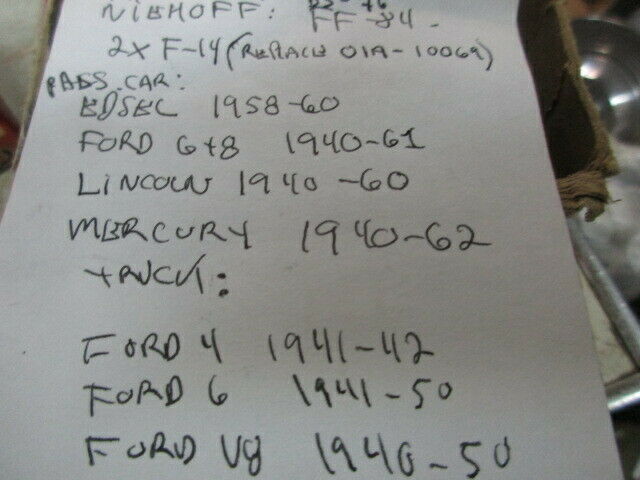 NIEHOFF: FF-84-
2X F-14 (REPLACE 01A-10069)
PASS. CAR:
EDSEL 1958-60
FORD 6+8 1940-61
LINCOLN 1940-60
MERCURY 1940-62
TRUCK:
FORD 4 1941-42
FORD 6 1941-50
FORD V8 1940-50